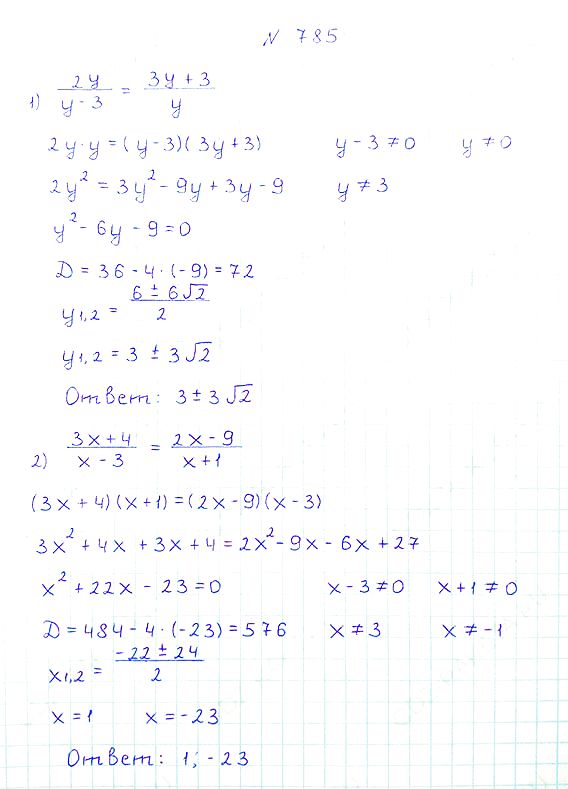 N 785
1) 2y / (y - 3) = (3y + 3) / y
2y·y = (y-3)(3y+3)   y - 3 ≠ 0   y ≠ 0
2y² = 3y² - 9y + 3y - 9   y ≠ 3
y² - 6y - 9 = 0
D = 36 - 4·(-9) = 72
y1,2 = (6 ± 6√2) / 2
y1,2 = 3 ± 3√2
Ответ: 3 ± 3√2
2) (3x + 4) / (x - 3) = (2x - 9) / (x + 1)
(3x + 4)(x + 1) = (2x - 9)(x - 3)
3x² + 4x + 3x + 4 = 2x² - 9x - 6x + 27
x² + 22x - 23 = 0   x - 3 ≠ 0   x + 1 ≠ 0
D = 484 - 4·(-23) = 576   x ≠ 3   x ≠ -1
x1,2 = (-22 ± 24) / 2
x = 1   x = -23
Ответ: 1; -23